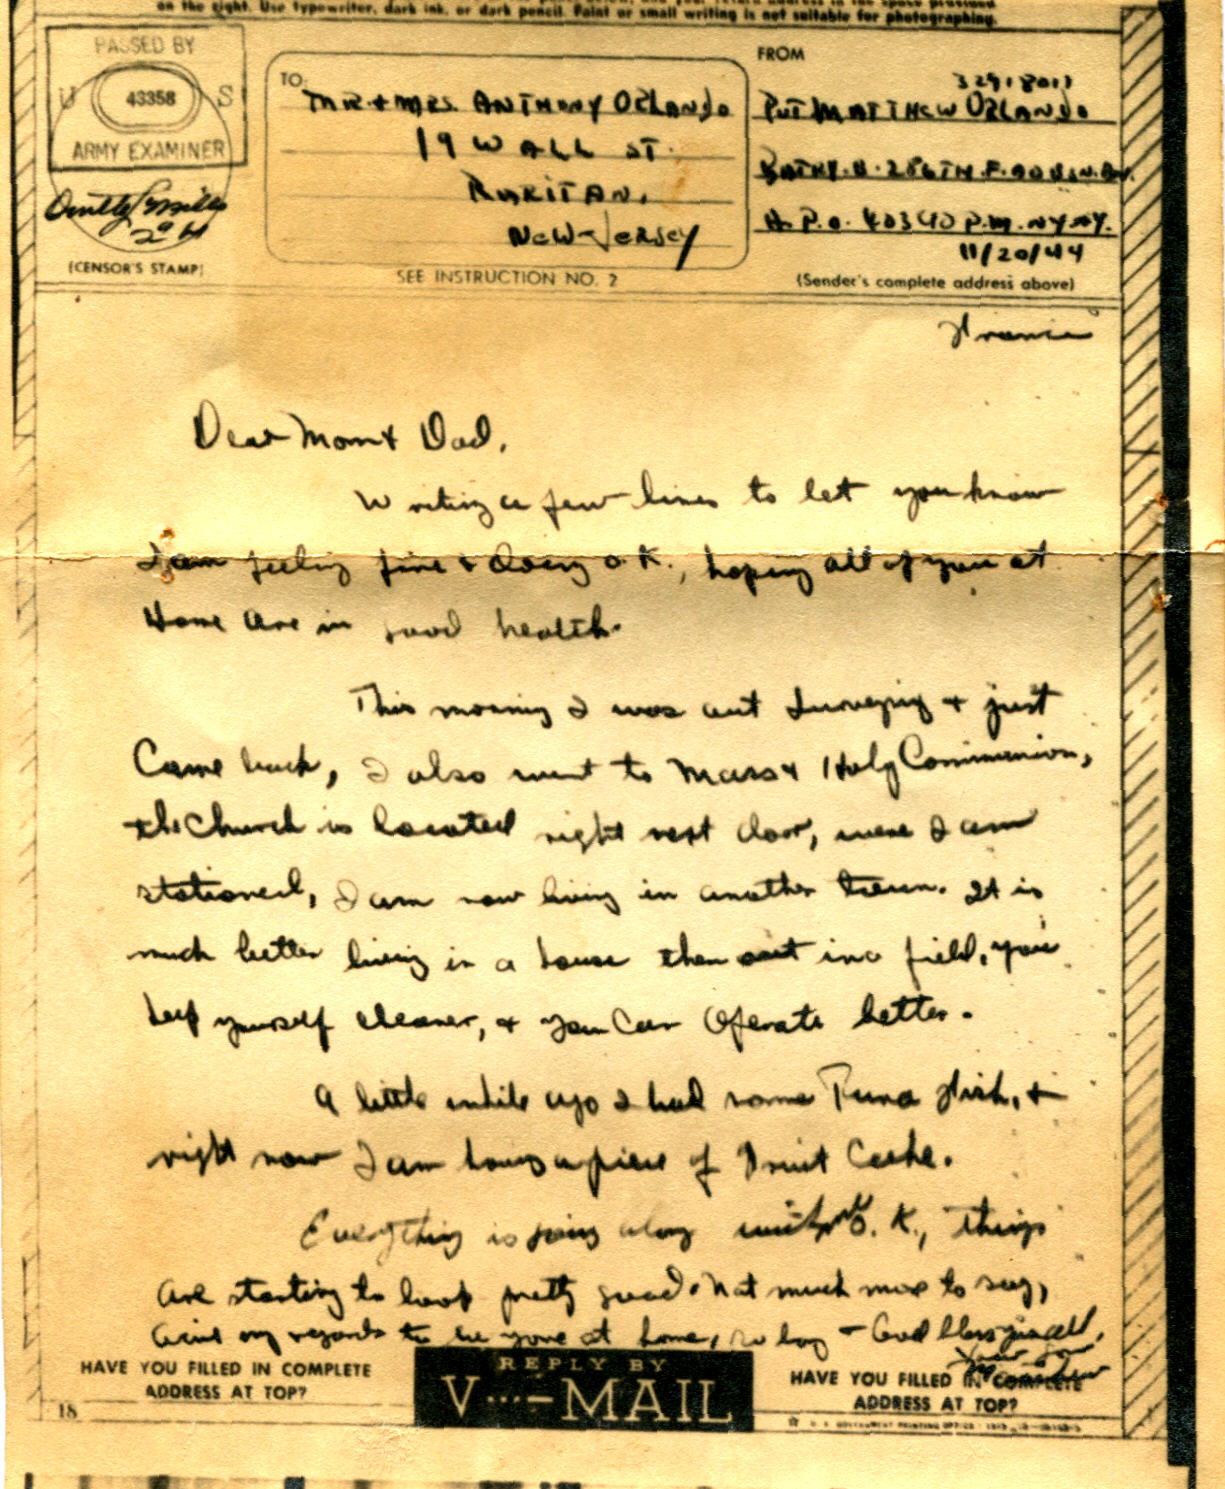 on the right. Use typewriter, dark ink, or dark pencil. Faint or small writing is not suitable for photographing.
PASSED BY
U 43358 S
ARMY EXAMINER
(CENSOR'S STAMP)
TO:
MR + MRS. ANTHONY ORLANDO
19 WALL ST.
RARITAN,
NEW-JERSEY
SEE INSTRUCTION NO. 2
FROM
PVT MATTHEW ORLANDO
BATRY. B. 286TH F.A. OBSN. BN.
A. P. O. 403 C/O P.M. NY NY.
11/20/44
(Sender's complete address above)
France
Dear Mom + Dad,
Writing a few lines to let you know
I am feeling fine + doing O.K., hoping all of you at
Home are in good health.
This morning I was out surveying + just
Came back, I also went to Mass + Holy Communion,
the Church is located right next door, were I am
stationed, I am now living in another town. It is
much better living in a house then out in a field, you
keep yourself cleaner, + you can Operate better.
A little while ago I had some Tuna fish, +
right now I am having a piece of Fruit Cake.
Everything is going along with me O.K., things
are starting to look pretty good. Not much more to say,
Give my regards to at home, so long - God bless you all.
Your Son
Matthew
HAVE YOU FILLED IN COMPLETE
ADDRESS AT TOP?
REPLY BY
V···—MAIL
HAVE YOU FILLED IN COMPLETE
ADDRESS AT TOP?
18